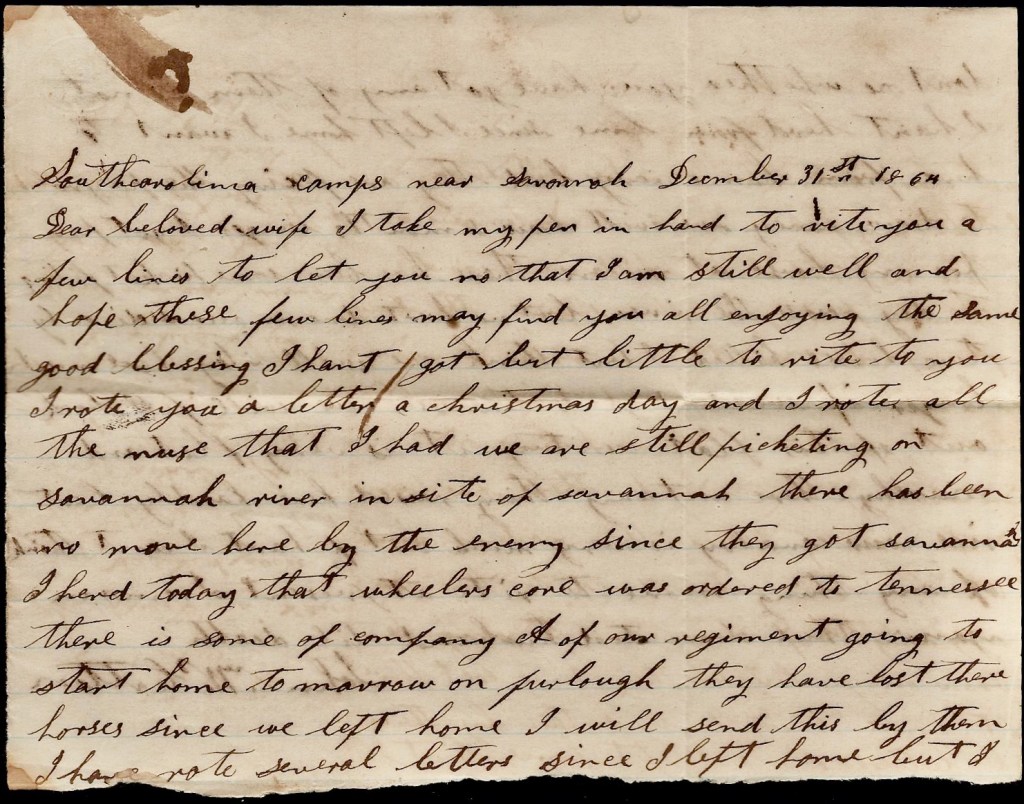 Southcarolina camps near savannah Decmber 31st 1864
Dear beloved wife I take my pen in hand to rite you a
few lines to let you no that I am still well and
hope these few lines may find you all enjoying the same
good blessing I hant got but little to rite to you
I rote you a letter a christmas day and I rote all
the nuse that I had we are still picketing on
savannah river in site of savannah there has been
no move here by the enemy since they got savannah
I herd today that wheelers core was ordered to tennessee
there is some of company A of our regiment going to
start home to marrow on furlough they have lost there
horses since we left home I will send this by them
I have rote several letters since I left home but I